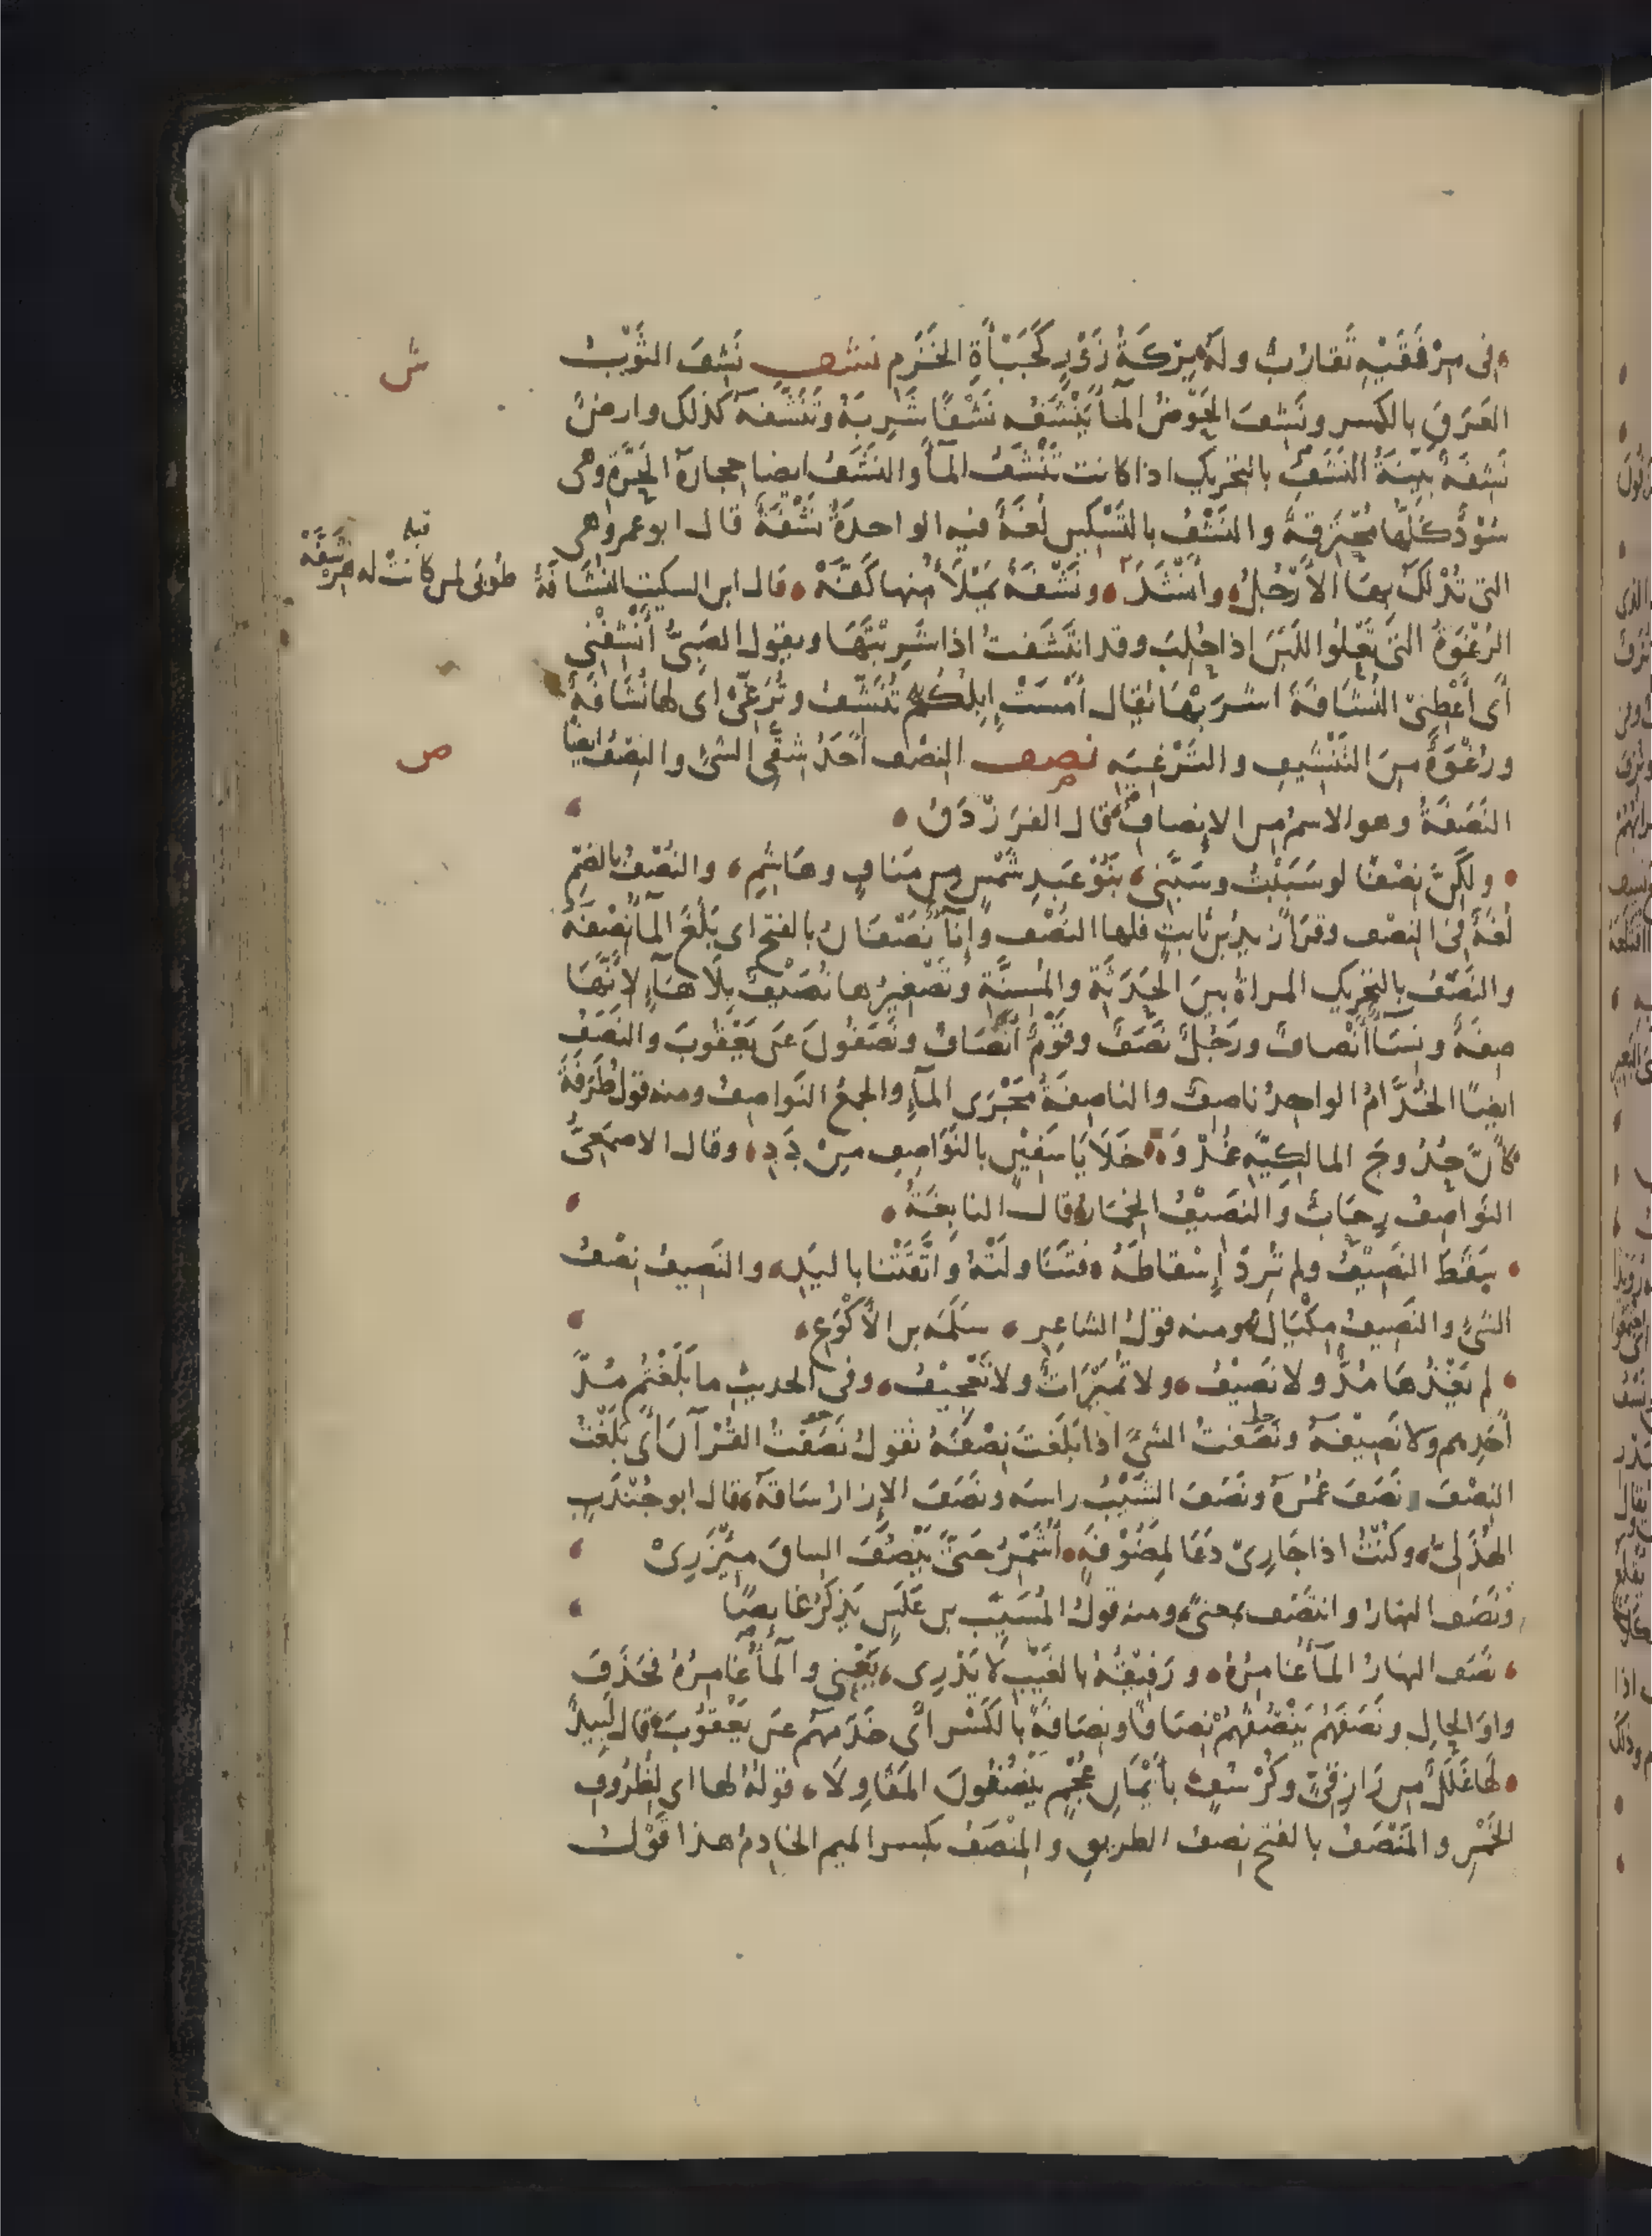 في مِرْفَقَيْهِ تَقارُبٌ ولَهُ بِرْكَةُ زَوْرٍ كَجَبْأَةِ الخَزَمِ نشف نَشِفَ الثَوْبُ
ش
العَرَقَ بالكسر ونَشِفَ الحَوْضُ المآءَ يَنْشَفُه نَشْفًا شَرِبَهُ وتَنَشَّفهُ كذلك وارضٌ
نَشِفَةٌ بَيِّنَةُ النَشَفِ بالتحريك اذا كانت تَنْشَفُ المآءَ والنَشَفُ ايضا حجارة الحَرَّةِ وهي
سُوْدٌ كَلُّها مُحْتَرِقةٌ والنَشْفُ بالتَسْكين لُغَةٌ فيه الواحدةُ نَشْفَةٌ قال ابو عمرو هي
التي تُدْلَكُ بِهَا الأَرْجُلُ وأَنْشَدَ ونَشْفَةٌ يَمْلَأُ منها كَفَّهْ قال ابن السكيت النُشَافَةُ
طُوبَى لمن كانتْ له هِرْشَفَّهْ
الرَغْوَةُ التي تَعْلُوا اللَبَنَ اذا حُلِبَ وقد انتَشَفتُ اذا شَرِبْتَهَا ويقول الصَبيُّ أَنْشِفْنِي
أي أَعْطِنِي النُشَافةَ اشرَبْهَا يُقال أَمْسَتْ إِبلُكُم تُنَشِّفُ وتُرَغِّي اى لها نُشَافَةٌ
ورُغْوَةٌ مِنَ التَنْشِيفِ والتَرْغِيَهِ نصف النِصْف أَحَدُ شِقَّي الشئ والنِصْفُ ايضًا
ص
النَصَفَةُ وهو الاسمُ من الإِنصاف قال الفَرَزْدَقُ
ولكِنَّ نِصْفًا لو سَبَبْتُ وسَبَّنِي بَنُوْ عَبدِ شَمْسٍ من مَنافٍ وهَاشِمِ والنُصْفُ بالضم
لُغَةٌ في النِصْف وقرَأ زيد بن ثابتٍ فلها النُصْف وإِنآءٌ نَصْفَانُ بالفتح اى بَلَغَ المآءُ نِصْفَهُ
والنَصَفُ بالتحريك المرأة بينَ الحَدَثَةِ والمُسِنَّةِ وتَصْغِيرُها نُصَيْفٌ بِلَا هَآءٍ لأَنَّهَا
صِفَةٌ ونِسَآءٌ أَنْصافٌ ورَجُلٌ نَصَفٌ وقَوْمٌ أَنْصَافٌ ونَصَفُونَ عَن يَعْقُوبَ والنَصَفُ
ايضًا الخُدَّامُ الواحِدُ ناصِفٌ والناصِفَةُ مَجْرَى المآءِ والجمعُ النَواصِفُ ومنه قول طَرَفَةَ
كأَنَّ حُدُوجَ المالكيَّةِ غُدْوَةً خَلَايَا سَفِيْنٍ بالنَوَاصِفِ مِنْ دَدِ وقال الاصمَعيُّ
النَوَاصِفُ رِحَابٌ والنَصِيْفُ الخِمَارُ قال النابِغَةُ
سَقَطَ النَصِيْفُ ولم تُرِدْ إِسْقاطَهُ فتَنَاولَتْهُ واتَّقَتْنا باليَدِ والنَصِيفُ نِصْفُ
الشئِ والنَصِيفُ مِكْيَالٌ ومنه قولُ الشاعِرِ سَلَمَه بن الأَكْوَعِ
لم يَغْذُهَا مُدٌّ ولا نَصِيْفُ ولا تُمَيْرَاتٌ ولا تَعْجِيْفُ وفي الحديثِ ما بَلَغْتُم مُدَّ
أَحَدِهم ولا نَصِيْفَهُ ونَصَفتُ الشئَ اذا بَلَغتَ نِصْفَهُ تقولُ نَصَفْتُ القُرْآنَ أي بَلَغْتُ
النِصْفَ ونَصَفَ عُمُرَهُ ونَصَفَ الشَيْبُ راسه ونَصَفَ الإزارُ سَاقَهُ قال ابو جُنْدَبٍ
الهُذَلِيُّ وكُنْتُ اذا جَارِيْ دَعَا لِمَضُوْفَةٍ أُشَمِّرُ حَتَّى يَنْصُفَ الساقَ مِئْزَرِيْ
ونَصَف النهارُ وانتَصَف بمعنىً ومنه قولُ المُسَيَّبِ بن عَلَسٍ يَذكُرُ غايصًا
نَصَف النهارُ المآءُ غامِرُهُ ورَفِيْقُهُ بالغَيْبِ لا يَدْرِي يَعْنِي والمآءُ غامِرُهُ فحَذَفَ
واوَ الحالِ ونَصَفَهُم يَنْصُفُهُمْ نِصَافًا ونِصَافَةً بالكَسْر أَى خَدَمَهُم عَن يَعْقُوبَ قال لَبِيدٌ
لها غَلَلٌ من رَازِقِيٍّ وكُرْسُفٍ بأَيْمانِ عُجْمٍ يَنْصُفُونَ المَقَاوِلَا قولهُ لها اى لِظُرُوفِ
الخَمْرِ والمَنْصَفُ بالفتح نِصفُ الطريقِ والمِنْصَفُ بكسر الميم الخادِمُ هذا قَوْلُ